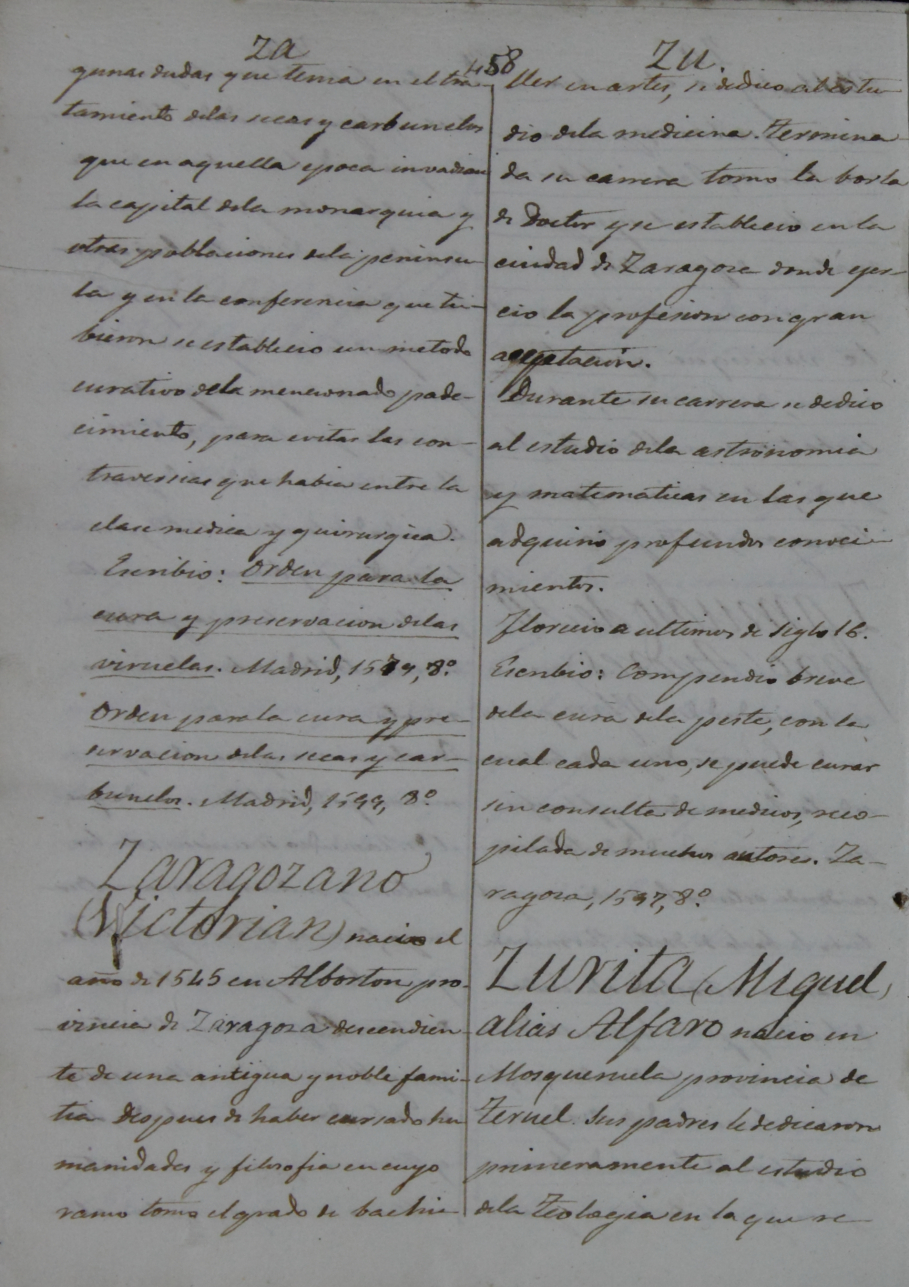 Za
458
Zu.
gunas dudas que tenia en el tra-
tamiento delas secas y carbunclos
que en aquella epoca invadian
la capital dela monarquia y
otras poblaciones dela peninsu-
la y en la conferencia que tu-
bieron se establecio un metodo
curativo dela mencionado pade-
cimiento, para evitar las con-
traversias que habia entre la
clase medica y quirurgica.
Escribio: Orden para la
cura y preservacion delas
viruelas. Madrid, 1579, 8º
Orden para la cura y pre-
servacion delas secas y car-
bunclos. Madrid, 1599, 8º
Zaragozano
(Victorian) nacio el
año de 1545 en Alborton pro-
vincia de Zaragoza descendien-
te de una antigua y noble fami-
lia despues de haber cursado hu
manidades y filosofia en cuyo
ramo tomo el grado de bachi-
ller en artes, se dedico al estu-
dio dela medicina. Termina-
da su carrera tomo la borla
de Doctor y se establecio en la
ciudad de Zaragoza donde ejer-
cio la profesion con gran
aceptación.
Durante su carrera se dedico
al estudio dela astronomia
y matematicas en las que
adquirio profundos conoci-
mientos.
Florecio a ultimos de siglo 16.
Escribio: Compendio breve
dela cura dela peste, con la
cual cada uno, se puede curar
sin consulta de medicos, reco-
pilada de muchos autores. Za-
ragoza, 1597, 8º
Zurita (Miguel)
alias Alfaro nacio en
Mosqueruela provincia de
Teruel. Sus padres le dedicaron
primeramente al estudio
dela Teologia en la que re-